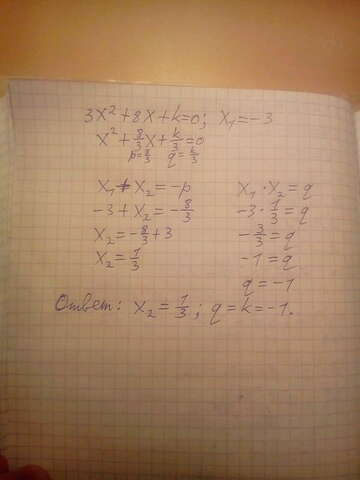 3x² + 8x + k = 0; x₁ = -3
x² + 8/3 x + k/3 = 0
p = 8/3 q = k/3
x₁ + x₂ = -p x₁ · x₂ = q
-3 + x₂ = -8/3 -3 · 1/3 = q
x₂ = -8/3 + 3 -3/3 = q
x₂ = 1/3 -1 = q
q = -1
Ответ: x₂ = 1/3; q = k = -1.